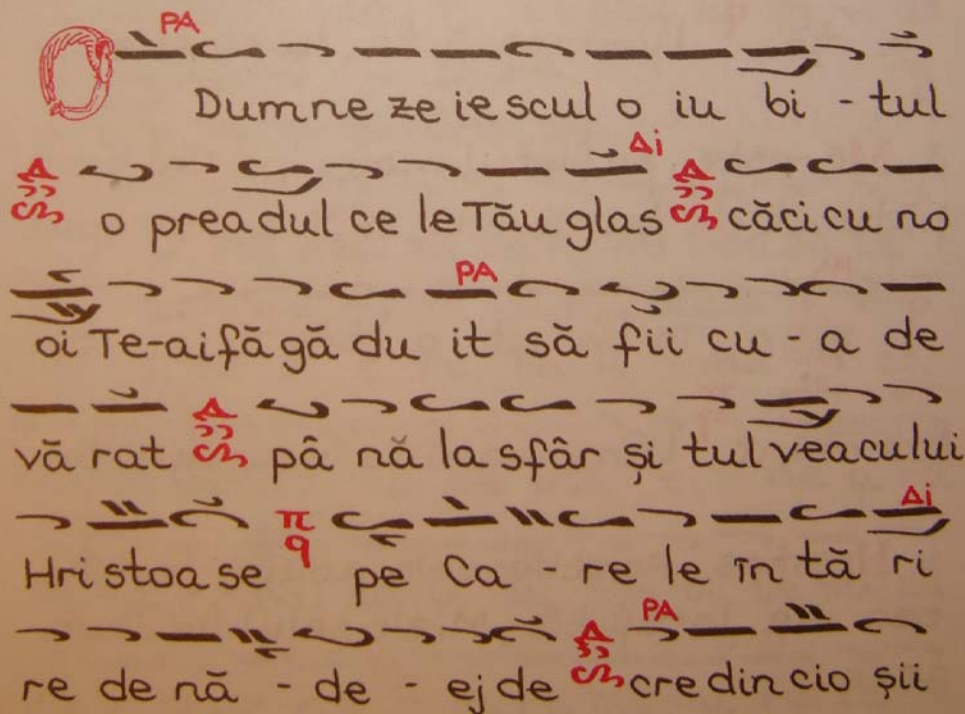 PA
O Dumne ze ie scul o iu bi - tul
Δi
o prea dul ce le Tău glas căci cu no
PA
oi Te-ai fă gă du it să fii cu - a de
vă rat pâ nă la sfâr și tul veacului
π q Δi
Hri stoa se pe Ca - re le în tă ri
PA
re de nă - de - ej de cre din cio șii